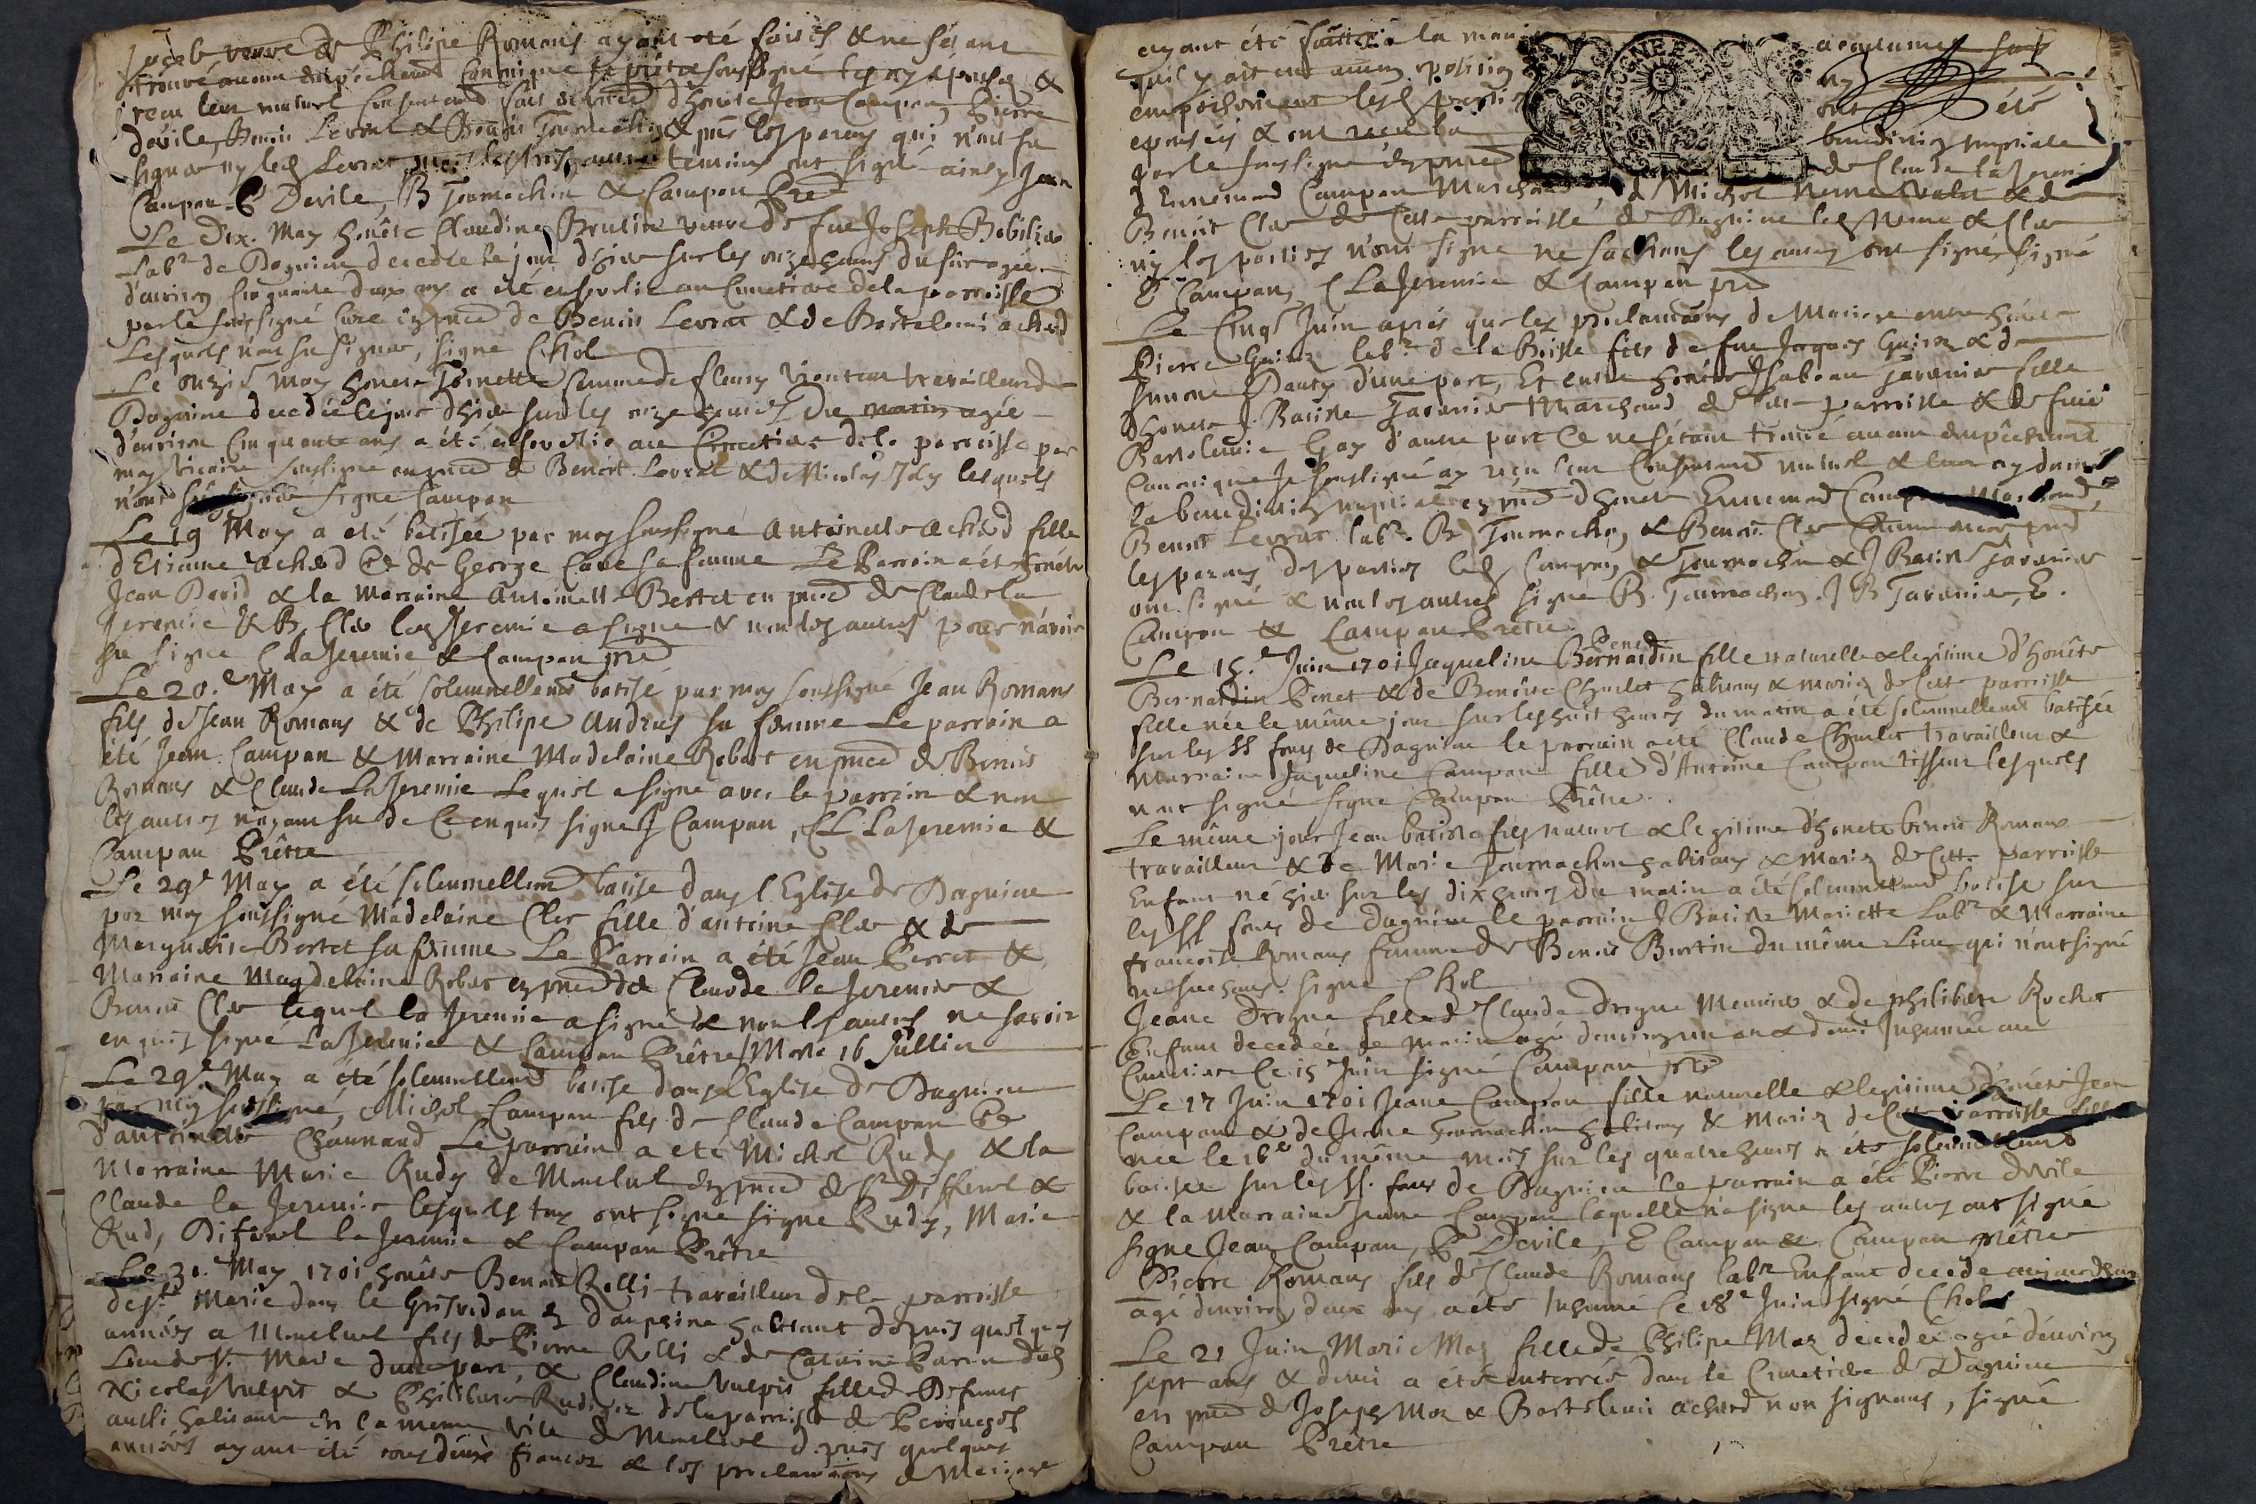 Jacob veuve de Philipe Romans ayant été faites & ne sétant
trouvé aucun empêchement Canonique je prêtre soussigné les ay épousés &
receu leur mutuel consentement fait en pnce d'honête Jean Campan, Pierre
devile, Benoit Levrat & Benoit Tournachon & puis les parens qui n'ont su
signer ny led Levrat, mais les autres temoins ont signé ainsy Jean
Campan P Devile, B Tournachon & Campan Ptre
Le Dix. May honête Claudine Brulite veuve de feu Joseph Bobilier
Labr de Dagnieu decedée le jour d'hier sur les onze heures du soir agée
d'environ cinquante deux ans a été ensevelie au Cimetiere de la parroisse
par le soussigné curé en pnce de Benoit Levrat & de Bartelemi achard
Lesquels n'ont su signer, signé Chol
Le onzie May honete Toinette femme de fleury travailleur de
Dagnieu decedée le jour d'hier sur les onze heures du matin agée
d'environ Cinquante ans a été ensevelie au Cimetiere de la parroisse par
moy vicaire soussigné en pnce de Benoit Levrat & de Nicolas lesquels
n'ont signé Campan
Le 19 May a eté batisée par moy soussigné Antoinette achard fille
d'Etienne achard & de George Cave sa femme Le Parrain a été honête
Jean David & la marraine Antoinette Bertet en pnce de Claude la
Jeremie & B. Cler led Jeremie a signé & non les autres pour n'avoir
su signé C la Jeremie & Campan ptre
Le 20.e May a été solemnellement batisé par moy soussigné Jean Romans
fils de Jean Romans & de Philipe Andrus sa femme Le parrain a
été Jean Campan & Marraine Madelaine Robert en pnce de Benoit
Romans & Claude La Jeremie Lequel a signé avec le parrain & non
les autres n'ayant su de ce enquis signé J Campan, CL LaJeremie &
Campan Prêtre
Le 29e May a été solemnellement batisé dans l'Eglise de Dagnieu
par moy soussigné Madelaine Cler fille d'antoine Cler & de
Marguerite Bertet sa femme Le Parrain a été Jean Perret &
Marraine Magdelaine Robert en pnce de Claude la Jeremie &
Benoit Cler lequel la Jeremie a signé & non les autres ne savoir
enquis signé LaJeremie & Campan Prêtre Morte 16 Juillet
Le 29e May a été solemnellement batisé dans l'Eglise de Dagnieu
par moy soussigné, Michel Campan fils de Claude Campan &
d'antoinette Chaunand Le parrain a eté Michel Rudy & la
Marraine Marie Rudy de Monluel en pnce de Sr Differnel &
Claude la Jeremie lesquels tous ont signé signé Rudy, Marie
Rud, Difernel la Jeremie & Campan Prêtre
Le 30. May 1701 honête Benoit Rolli travailleur de la parroisse
de Ste Marie dans le Grisvodan en dauphine habitant depuis quelques
années a Monluel fils de Pierre Rolli & de Cataine du
Lieu de St Marie d'une part, & Claudine Vulpit fille de Defunt
Nicolas Vulpit & Philiberte Rudigoz de la parroisse de Perouges
aussi habitante en la meme ville de Monluel depuis quelques
années ayant été tous deux fiancez & les proclamations de Mariage
ayant été faites a la maniere accoutumée sans
qu'il y ait eu aucun opposition ny
empêchement lesd parties ont été
epousés & ont receu la benediction nuptiale
par le soussigné en pnce de Claude la Jeremie
d'Ennemond Campan Marchand, d Michel Neme Valet & de
Benoit Cler de Cette parroisse de Dagnieu led Neme & Cler
ny les parties n'ont signé ne sachans les autres ont signés signé
E Campan, C LaJeremie & Campan ptre
Le Cinqe Juin aprés que les proclamaons de Mariage entre honête
Pierre Guinoz labr de la Boisse fils de feu Jaques Guinoz & de
Jeanne Danty d'une part, Et entre honête Isabeau Tavernier fille
d'honete J. Batiste Tavernier Marchand de cette parroisse & de feüe
Bartolemie Gay d'autre part Ce ne sétant trouvé aucun empêchement
Canonique Je soussigné ay receu leur Consentement mutuel & leur ay donné
la benediction nuptiale en pnce d'honete Ennemond Campan Marchand,
Benoit Levrat labr. B Tournachon, & Benoit Cler
les parens des parties led Campan, & Tournachon & J Batiste Tavernier
ont signé & non les autres signé B. Tournachon. J B Tavernier, E.
Campan & Campan Prêtre
Le 15.e Juin 1701 Jaqueline Benet Bernardin fille naturelle & legitime d'honête
Bernardin Benet & de Benoite Charlet habitans & mariez de Cette parroisse
fille née le même jour sur les huit heures du matin a été solemnellement batisée
sur les SS fons de Dagnieu le parrain a été Claude Charlet travailleur &
Marraine Jaqueline Campan fille d'Antoine Campan tisseur lesquels
n'ont signé signé Campan Prêtre.
Le même jour Jean batiste fils naturel & legitime d'honete benoit Romans
travailleur & de Marie Tournachon habitans & mariez de Cette Parroisse
Enfant né hier sur les dix heures du matin a été solemnellement batisé sur
les SS fons de dagnieu le parrain J Batiste Mariette Labr & Marraine
françoise Romans femme de Benoit Burtin du même Lieu qui n'ont signé
ne sachans. signé Chol
Jeane Drogue fille de Claude Drogue Meunier & de philiberte Rochet
Enfant decedée le matin agé denviron un an & demi Inhumée au
Cimetiere le 15e Juin signé Campan ptre
Le 17 Juin 1701 Jeane Campan fille naturelle & legitime d'honête Jean
Campan & de Jeane Tournachon habitans & Mariez de Cette parroisse fille
née le 16e du même mois sur les quatre heures a été solemnellement
batisée sur les SS. fons de Dagnieu le parrain a été Pierre Devile
& la Marraine Jeanne Campan laquelle n'a signé les autres ont signé
signé Jean Campan, P Devile, E Campan & Campan prêtre
Pierre Romans fils de Claude Romans labr Enfant decede aujourdhuy
agé denviron deux ans a été Inhumé ce 18e Juin signé Chol
Le 21 Juin Marie Moz fille de Philipe Moz decedée agée denviron
sept ans & demi a été enterrée dans le Cimetiere de Dagnieu
en pnce de Joseph Moz & Bartelemi achard non signans, signé
Campan Prêtre